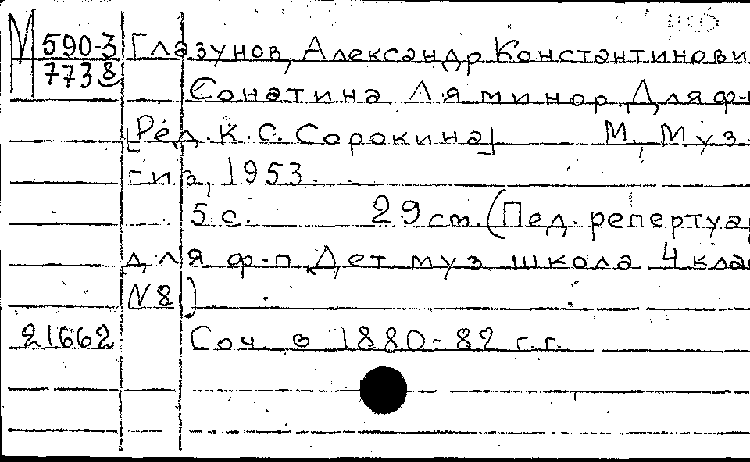 М 590-3 Глазунов, Александр Константинови
7738 Сонатина Ля минор Для ф-
[Ред. К. С. Сорокина] М, Муз-
гиз, 1953.
5 с. 29 см. (Пед. репертуар
для ф-п Дет муз школа 4 клас
N 8)
21662 Соч в 1880-82 г.г.